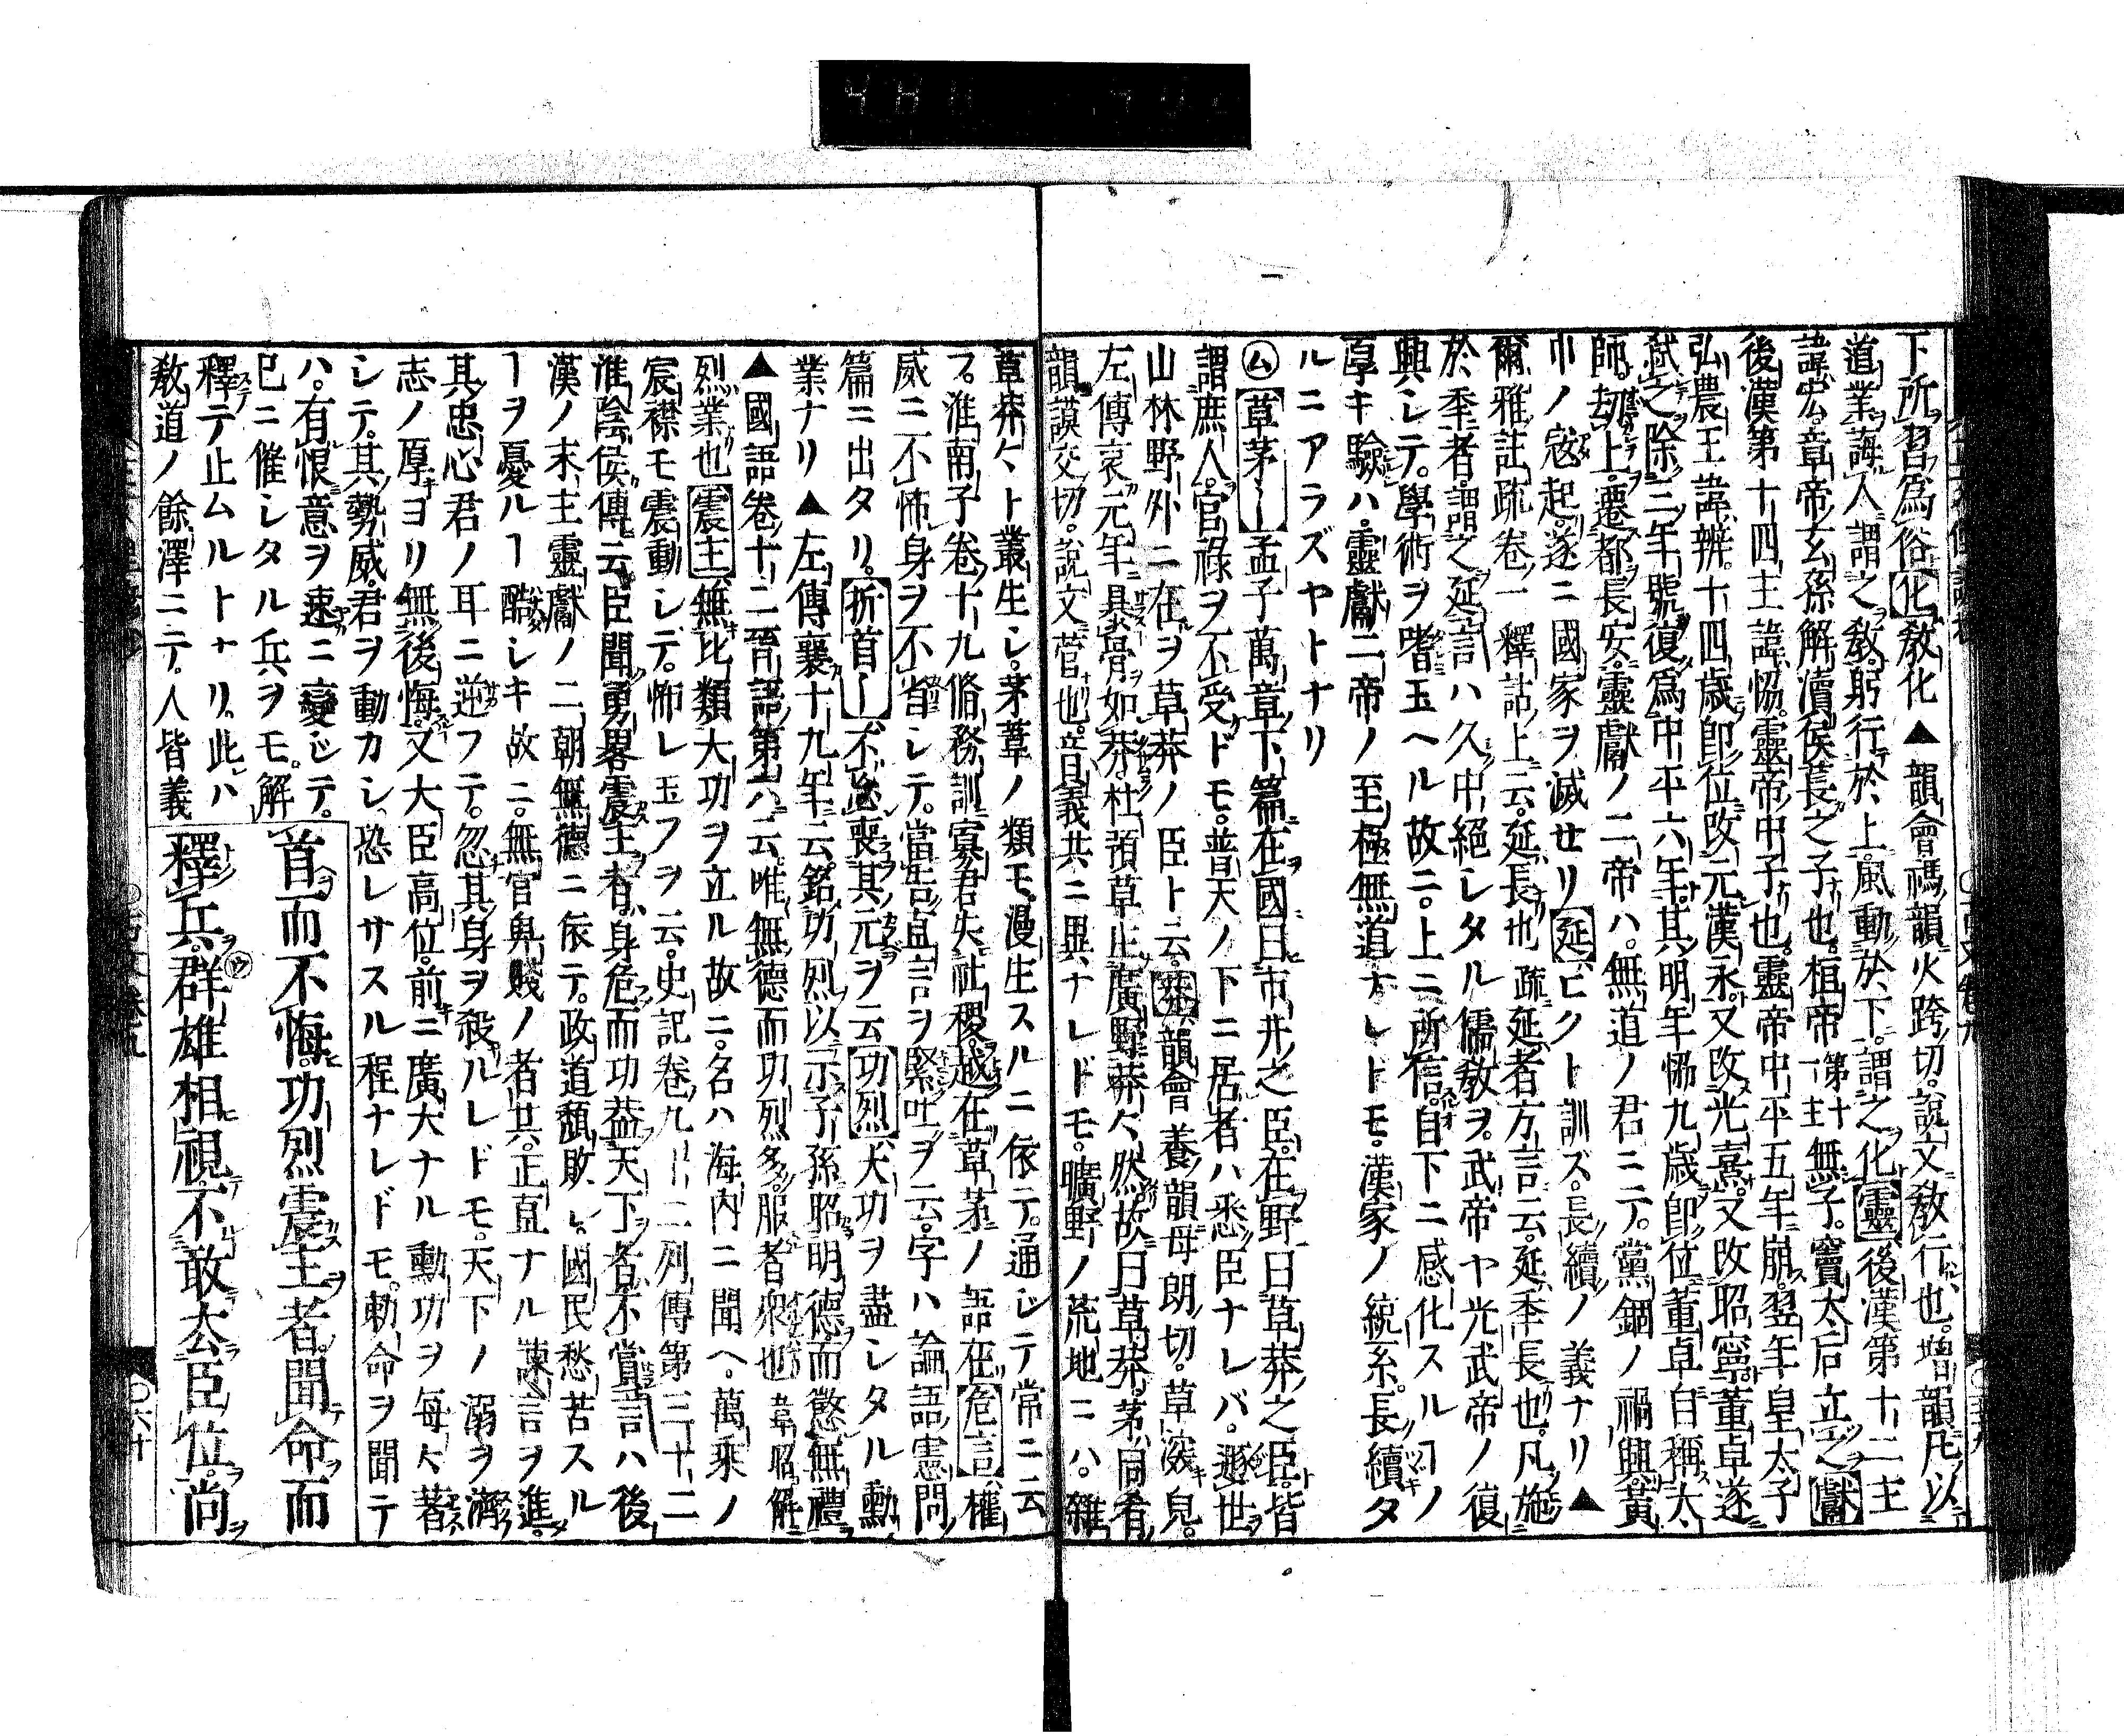 下所習爲俗化教化▲韻會禡韻火跨切。說文教行也。增韻凡以
道業誨人謂之教。躬行於上風動於下。謂之化靈後漢第十二主
諱宏。章帝玄孫解瀆侯萇之子也。桓帝第十一主無子。竇太后立之獻
後漢第十四主諱恊。靈帝中子也。靈帝中平五年崩。翌年皇太子
弘農王諱辨。十四歲卽位改元漢永。又改光熹。又改昭寧。董卓遂
弑之。除三年號復爲中平六年。其明年恊九歲卽位。董卓自稱太
師。劫上遷都長安。靈獻ノ二帝ハ。無道ノ君ニテ。黨錮ノ禍興。黃
巾ノ寇起。遂ニ國家ヲ滅セリ延ヒクト訓ズ。長續ノ義ナリ▲
爾雅註疏卷一釋詁上云。延長也疏延者方言云。延季長也。凡施
於季者。謂之延言ハ久中絕レタル儒教ヲ。武帝ヤ光武帝ノ復
興シテ。學術ヲ嗜玉ヘル故ニ。上ニ所信。自下ニ感化スルヿノ
厚キ驗ハ。靈獻二帝ノ至極無道ナレトモ。漢家ノ統系。長續タ
ルニアラズヤトナリ
㋰草茅ー孟子萬章下篇在國曰市井之臣。在野曰草莽之臣。皆
謂庶人。官祿ヲ不受ドモ。普天ノ下ニ居者ハ悉臣ナレバ。遯世
山林野外ニ在ヲ草莽ノ臣ト云。莽韻會養韻母朗切。草深皃。
左傳哀元年暴骨如莽。杜預草止廣野莽々然故曰草莽。茅同肴
韻謨交切。說文菅也。音義共ニ異ナレドモ。曠野ノ荒地ニハ。雜
草莽々ト叢生シ。茅葦ノ類モ漫生スルニ依テ。通シテ常ニ云
フ。淮南子卷十九脩務訓寡君失社稷。越在草茅ノ語在危言權
威ニ不怖身ヲ不省シテ。當吿直言ヲ緊吐ヲ云。字ハ論語憲問
篇ニ出タリ。折首ー不忘喪其元ヲ云功烈大功ヲ盡シタル勳
業ナリ▲左傳襄十九年云銘功烈以示子孫昭明德而懲無禮
▲國語卷十二晉語第六云唯無德而功烈多。服者衆也韋昭解
烈業也震主無比類大功ヲ立ル故ニ。名ハ海內ニ聞ヘ。萬乘ノ
宸襟モ震動シテ。怖レ玉フヲ云。史記卷九ーー二列傳第三十二
淮陰侯傳云臣聞勇畧震主者。身危而功蓋天下者不賞言ハ後
漢ノ末主靈獻ノ二朝無德ニ依テ。政道頽敗シ。國民愁苦スル
ヿヲ憂ルヿ酷シキ故ニ。無官卑賤ノ者共。正直ナル諫言ヲ進。
其忠心君ノ耳ニ逆フテ。忽其身ヲ殺ルレドモ。天下ノ溺ヲ濟
志ノ厚ヨリ無後悔。又大臣高位。前ニ廣大ナル動功ヲ每々著
シテ。其勢威。君ヲ動カシ恐レサスル程ナレドモ。勅命ヲ聞テ
ハ。有恨意ヲ速ニ變シテ。
巳ニ催シタル兵ヲモ。解
釋テ止ムルトナリ。此ハ
敎道ノ餘澤ニテ。人皆義
首而不悔。功烈震主者。聞命而
釋兵。群雄相視。不敢厺臣位。尚